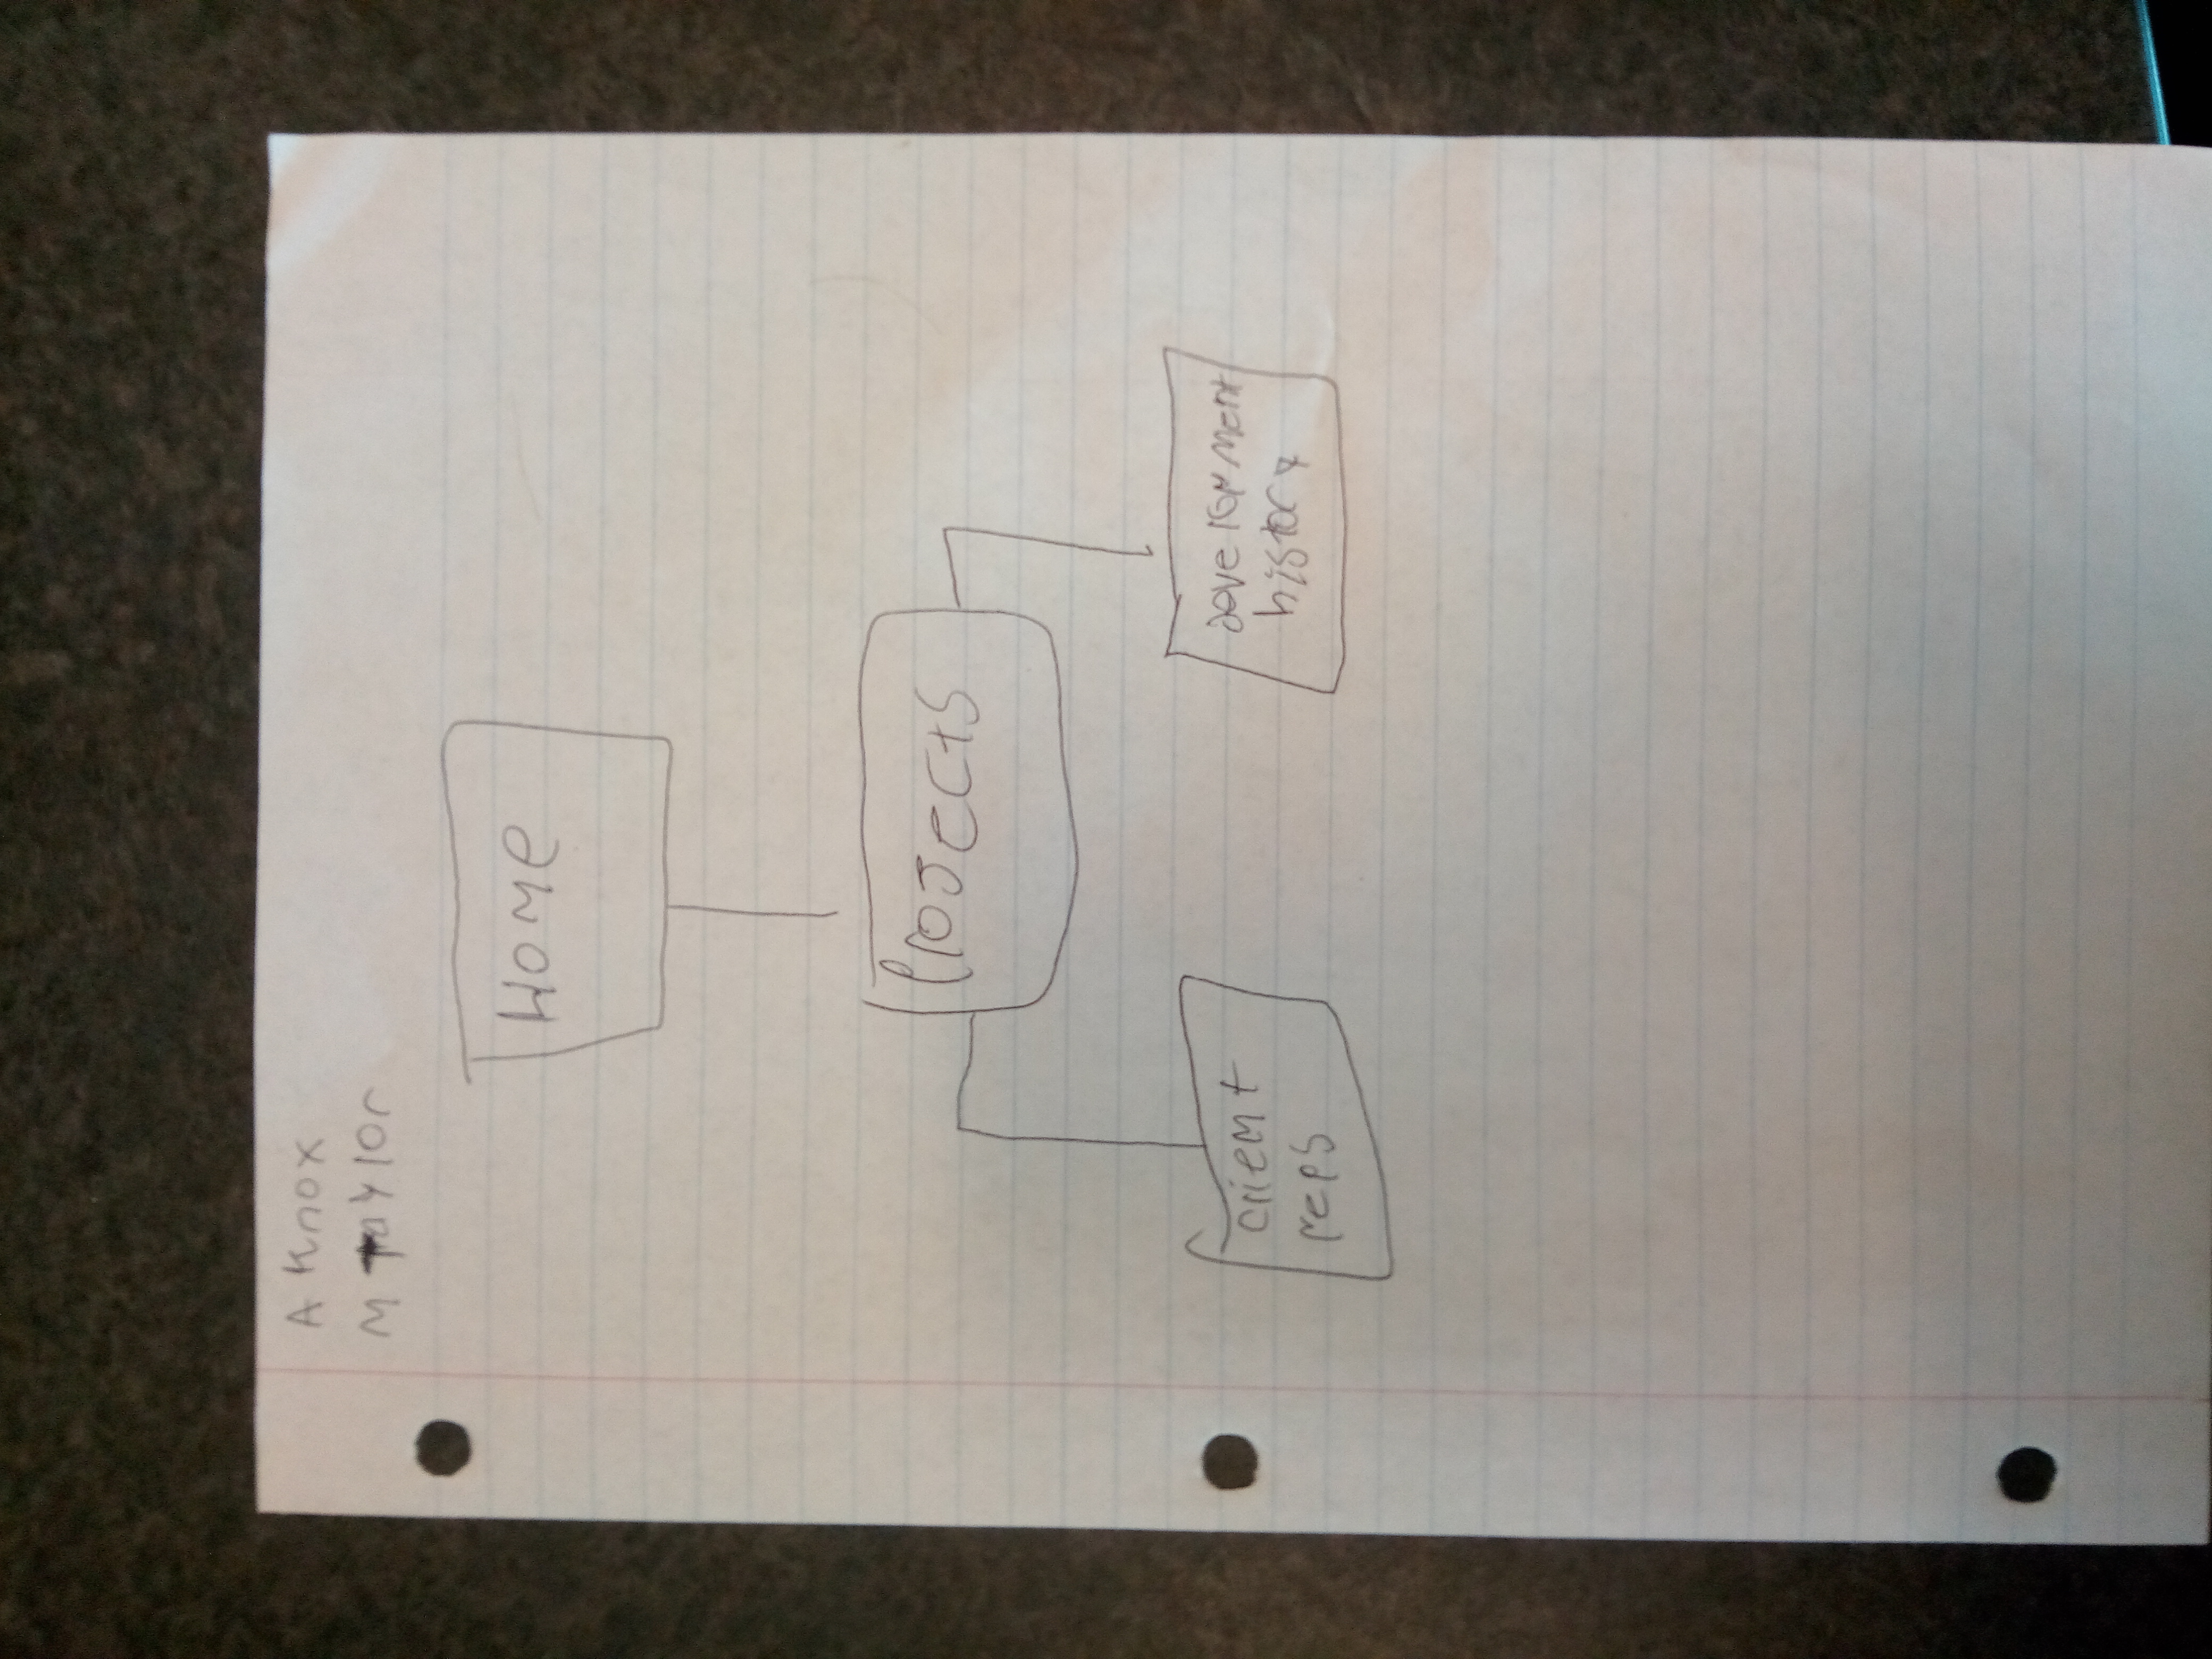 A Knox
M Taylor
Home
Projects
client
reps
development
history